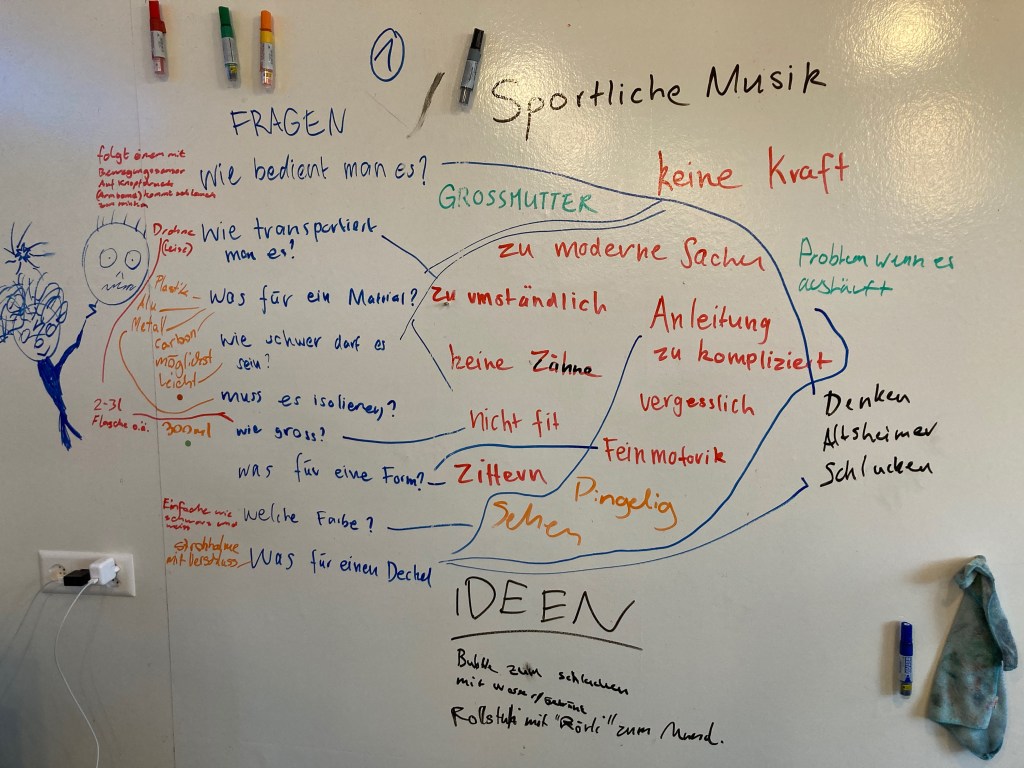 1
/ Sportliche Musik
FRAGEN
folgt einem mit
Bewegungssensor
Auf Knopfdruck
(Armband) kommt
zum
Wie bedient man es?
keine Kraft
GROSSMUTTER
Drohne
(leise)
wie transportiert
man es?
zu moderne Sachen
Problem wenn es
ausläuft
Plastik
Alu
Metall
carbon
möglichst
leicht
was für ein Material?
zu umständlich
Anleitung
zu kompliziert
wie schwer darf es
sein?
keine Zähne
muss es isolieren?
vergesslich
Denken
Altsheimer
Schlucken
2-3l
Flasche o.ä.
300ml
wie gross?
nicht fit
Feinmotorik
was für eine Form?
Zittern
Dingelig
Sehen
Einfache wie
schwarz und
weiss
welche Farbe?
Strohhalme
mit Verschluss
Was für einen Deckel
IDEEN
zum schlucken
mit Wasser/
Rollstuhl mit "Rörli" zum Mund.